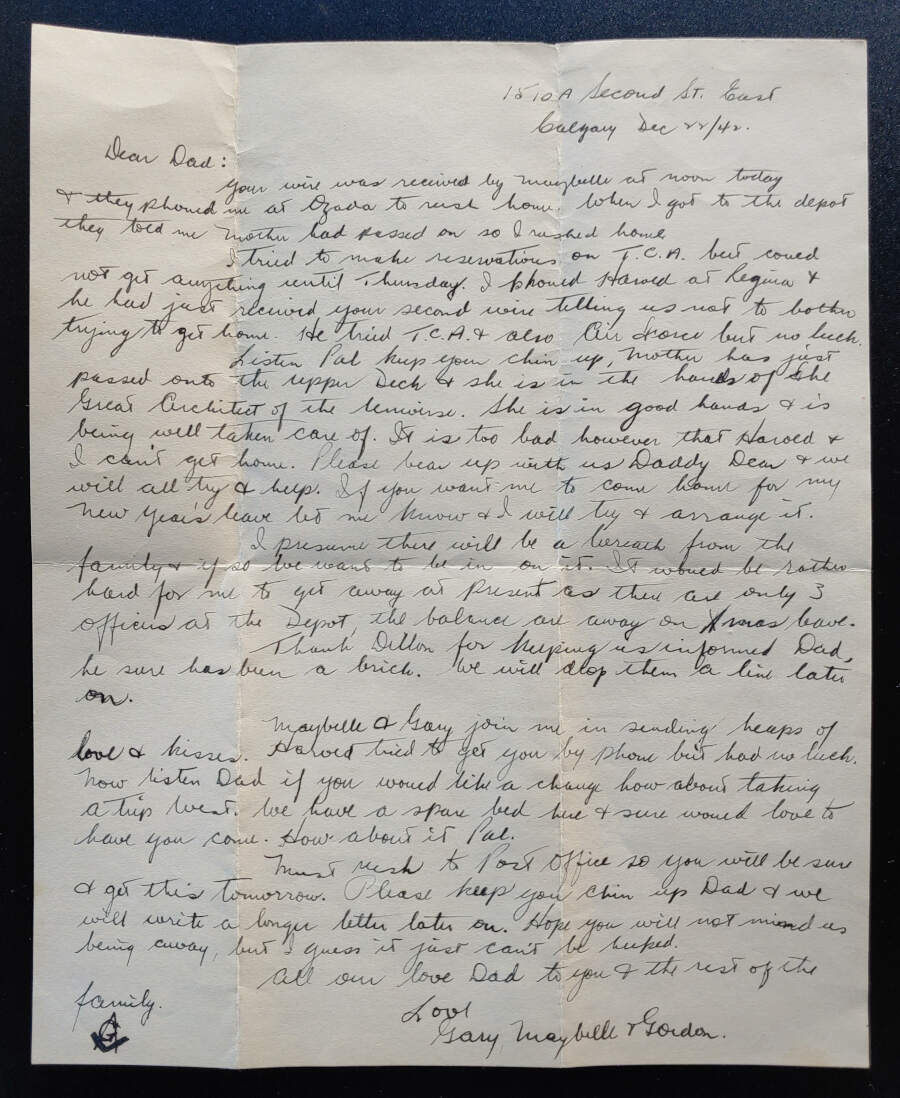 1510A Second St. East
Calgary Dec 22/42.
Dear Dad:
Your wire was received by Maybelle at noon today
& they phoned me at Ozada to rush home. When I got to the depot
they told me Mother had passed on so I rushed home
I tried to make reservations on T.C.A. but could
not get anything until Thursday. I phoned Harold at Regina &
he had just received your second wire telling us not to bother
trying to get home. He tried T.C.A. & also Air Force but no luck.
Listen Pal keep your chin up, Mother has just
passed onto the upper Deck & she is in the hands of the
Great Architect of the Universe. She is in good hands & is
being well taken care of. It is too bad however that Harold &
I can't get home. Please bear up with us Daddy Dear & we
will all try & help. If you want me to come home for my
New Year's leave let me know & I will try & arrange it.
I presume there will be a wreath from the
family & if so we want to be in on it. It would be rather
hard for me to get away at present as there are only 3
officers at the Depot, the balance are away on Xmas leave.
Thank Dillon for keeping us informed Dad,
he sure has been a brick. We will drop them a line later
on.
Maybelle & Gary join me in sending heaps of
love & kisses. Harold tried to get you by phone but had no luck.
Now listen Dad if you would like a change how about taking
a trip West. We have a spare bed here & sure would love to
have you come. How about it Pal.
Must rush to Post Office so you will be sure
& get this tomorrow. Please keep you chin up Dad & we
will write a longer letter later on. Hope you will not mind us
being away, but I guess it just can't be helped.
All our love Dad to you & the rest of the
family.
Love
Gary, Maybelle & Gordon.
G